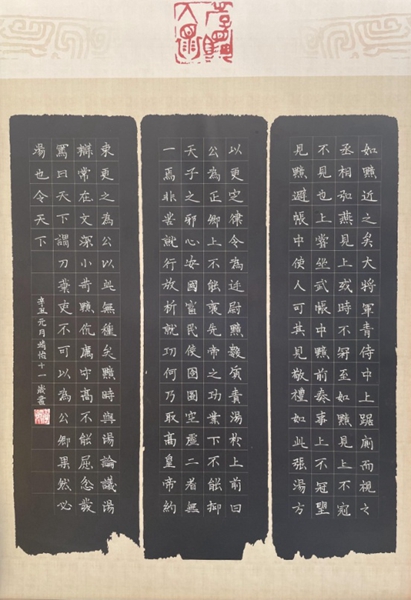 如黯近之矣大將軍青侍中上踞廁而視之
丞相弘燕見上或時不冠至如黯見上不冠
不見也上嘗坐武帳中黯前奏事上不冠望
見黯避帳中使人可其見敬禮如此張湯方
以更定律令為廷尉黯數質責湯於上前曰
公為正卿上不能褒先帝之功業下不能抑
天子之邪心安國富民使囹圄空虛二者無
一焉非苦就行放析就功何乃取高皇帝約
東更之為公以此無種矣黯時與湯論議湯
辯常在文深小苛黯伉厲守高不能屈忿發
罵曰天下謂刀筆吏不可以為公卿果然必
湯也令天下
辛丑元月 怡十一歲書